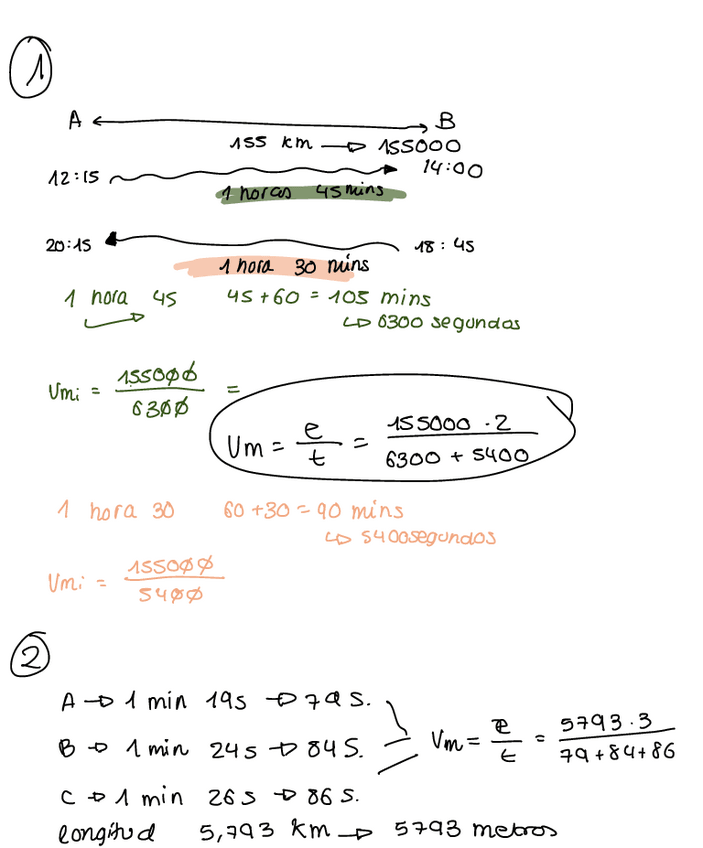 1
A ⟷ B
155 km → 155000
12:15 → 14:00
1 horas 45 mins
20:15 ← 18:45
1 hora 30 mins
1 hora 45 45+60 = 105 mins
↳ 6300 segundos
Vmi = 155000/6300 =
Vm = e/t = 155000·2/6300 + 5400
1 hora 30 60+30 = 90 mins
↳ 5400 segundos
Vmi = 155000/5400
2
A → 1 min 19s → 79 s.
B → 1 min 24s → 84 S.
Vm = e/t = 5793·3/79+84+86
C → 1 min 26s → 86 s.
longitud 5,793 km → 5793 metros